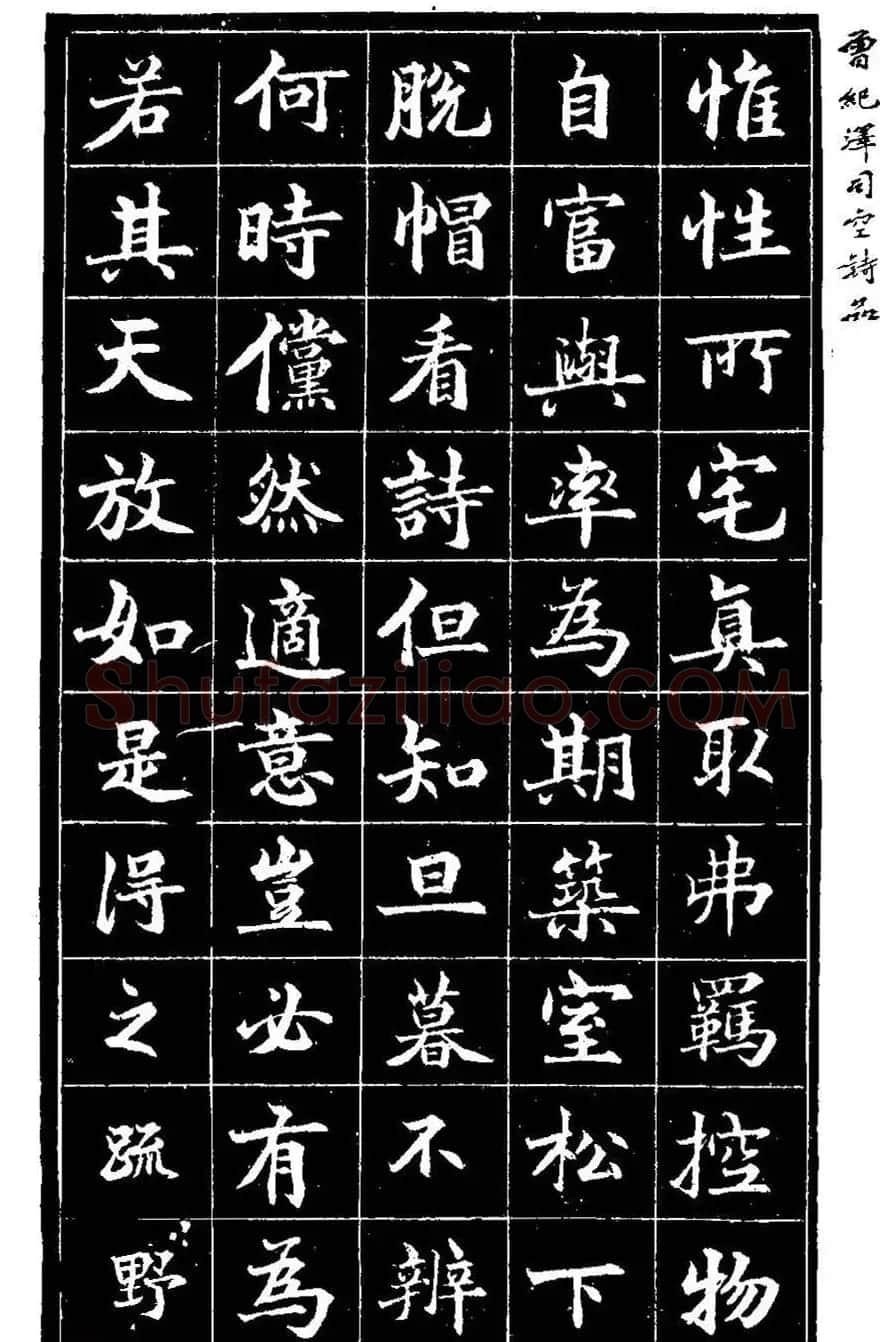 曾紀澤司空詩品
惟性所宅真取弗羈控物
自富與率為期築室松下
脫帽看詩但知旦暮不辨
何時儻然適意豈必有為
若其天放如是得之疏野
Shufaziliao.COM